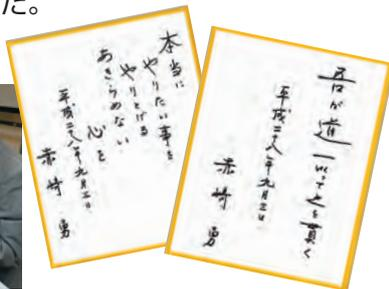 た。
本当に
やりたい事を
やりとげる
あきらめない
心を
平成二八年九月
赤﨑 勇
吾が道一以て之を貫く
平成二八年九月
赤﨑 勇